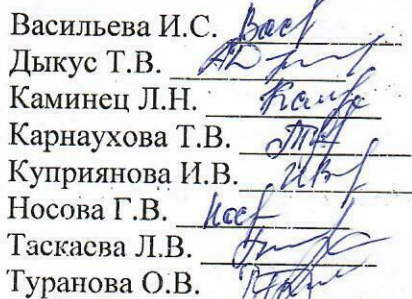 Васильева И.С.
Дыкус Т.В.
Каминец Л.Н.
Карнаухова Т.В.
Куприянова И.В.
Носова Г.В.
Таскаева Л.В.
Туранова О.В.